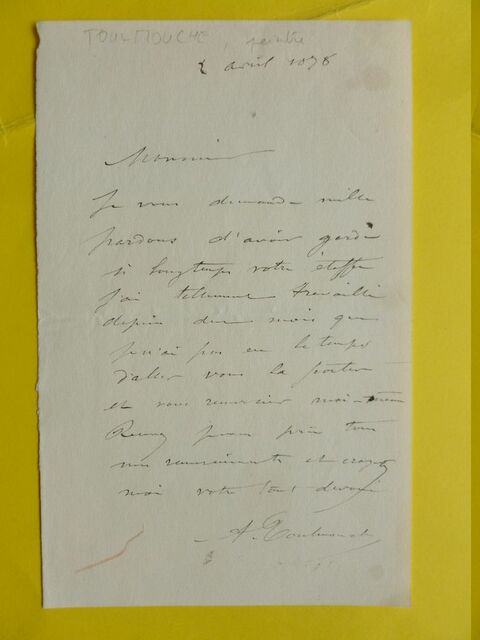 TOULMOUCHE, peintre
2 avril 1878
Monsieur
Je vous demande mille
pardons d'avoir gardé
si longtemps votre étoffe
j'ai tellement travaillé
depuis deux mois que
je n'ai pas eu le temps
d'aller vous la porter
et vous remercier moi-même
Recevez je vous prie tous
mes remerciements et croyez
moi votre tout dévoué
A. Toulmouche